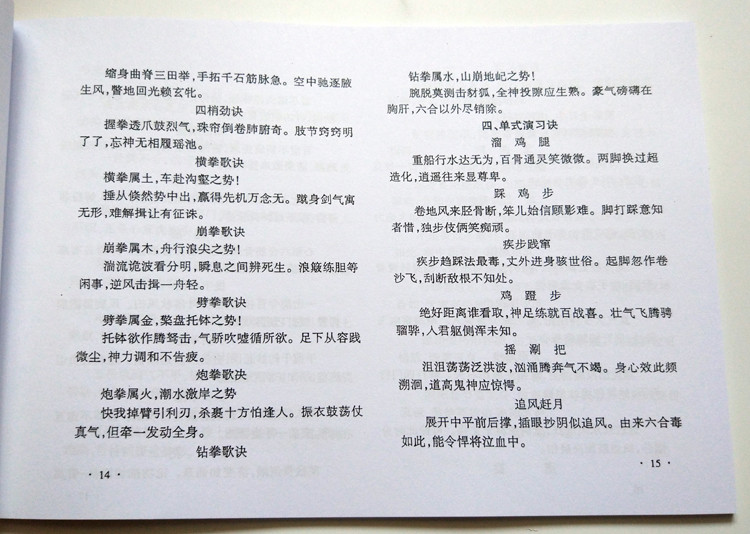 缩身曲脊三田举，手拓千石筋脉急。空中驰逐腋
生风，瞥地回光赖玄牝。
四梢劲诀
握拳透爪鼓烈气，珠帘倒卷肺腑奇。肢节窍窍明
了了，忘神无相履瑶池。
横拳歌诀
横拳属土，车赴沟壑之势！
捶从倏然势中出，赢得先机万念无。蹴身剑气寓
无形，难解揖让有征诛。
崩拳歌诀
崩拳属木，舟行浪尖之势！
湍流诡波看分明，瞬息之间辨死生。浪簸练胆等
闲事，逆风击揖一舟轻。
劈拳歌诀
劈拳属金，槃盘托钵之势！
托钵欲作腾骛击，气骄吹嘘循所欲。足下从容践
微尘，神力调和不告疲。
炮拳歌诀
炮拳属火，潮水激岸之势
快我掉臂引利刃，杀裹十方怕逢人。振衣鼓荡仗
真气，但牵一发动全身。
钻拳歌诀
·14·
钻拳属水，山崩地屺之势！
腕脱莫测击豺狐，全神投隙应生熟。豪气磅礴在
胸肝，六合以外尽销除。
四、单式演习诀
溜鸡腿
重船行水达无为，百骨通灵笑微微。两脚换过超
造化，逍遥往来显尊卑。
踩鸡步
卷地风来胫骨断，笨儿始信顾影难。脚打踩意知
者惜，独步伎俩笑痴顽。
疾步践窜
疾步趋踩法最毒，丈外进身骇世俗。起脚忽作卷
沙飞，刮断敌根不知处。
鸡蹬步
绝好距离谁看取，神足练就百战喜。壮气飞腾骋
骝骅，人君躯侧浑未知。
摇涮把
沮沮荡荡泛洪波，汹涌腾奔气不竭。身心效此频
溯洄，道高鬼神应惊愕。
追风赶月
展开中平前后撑，插眼抄阴似追风。由来六合毒
如此，能令悍将泣血中。
·15·